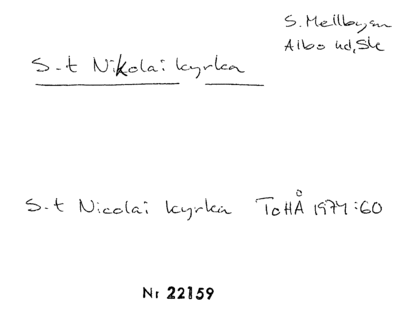 S. Mellbysn
Albo hd, Sk
S-t Nikolai kyrka
S-t Nicolai kyrka ToHÅ 1974:60
Nr 22159